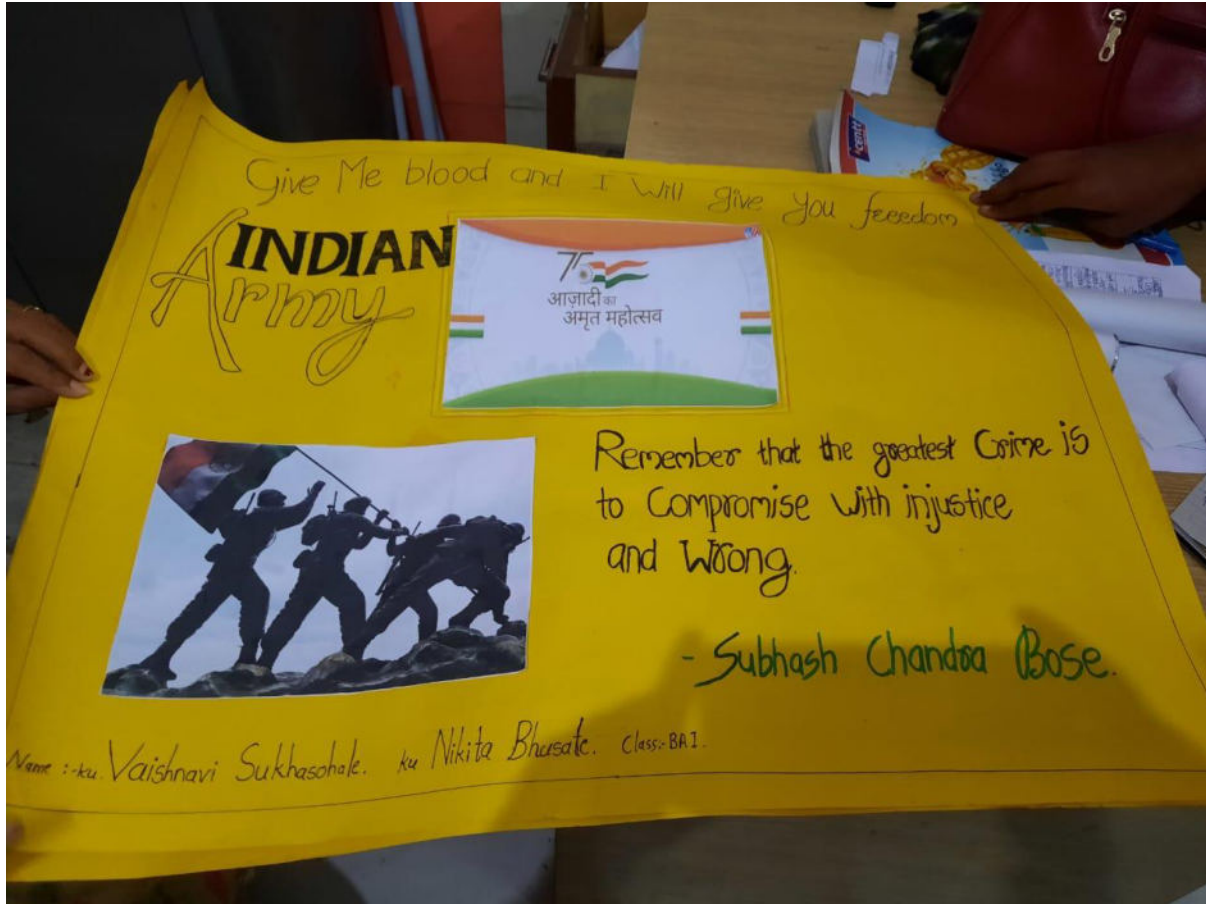 Give Me blood and I Will give You freedom
INDIAN
Army
75
आज़ादी का
अमृत महोत्सव
Remember that the greatest Crime is
to Compromise with injustice
and Wrong.
- Subhash Chandra Bose.
Name :- ku. Vaishnavi Sukhasohale. ku Nikita Bhusate. Class:- BA I.